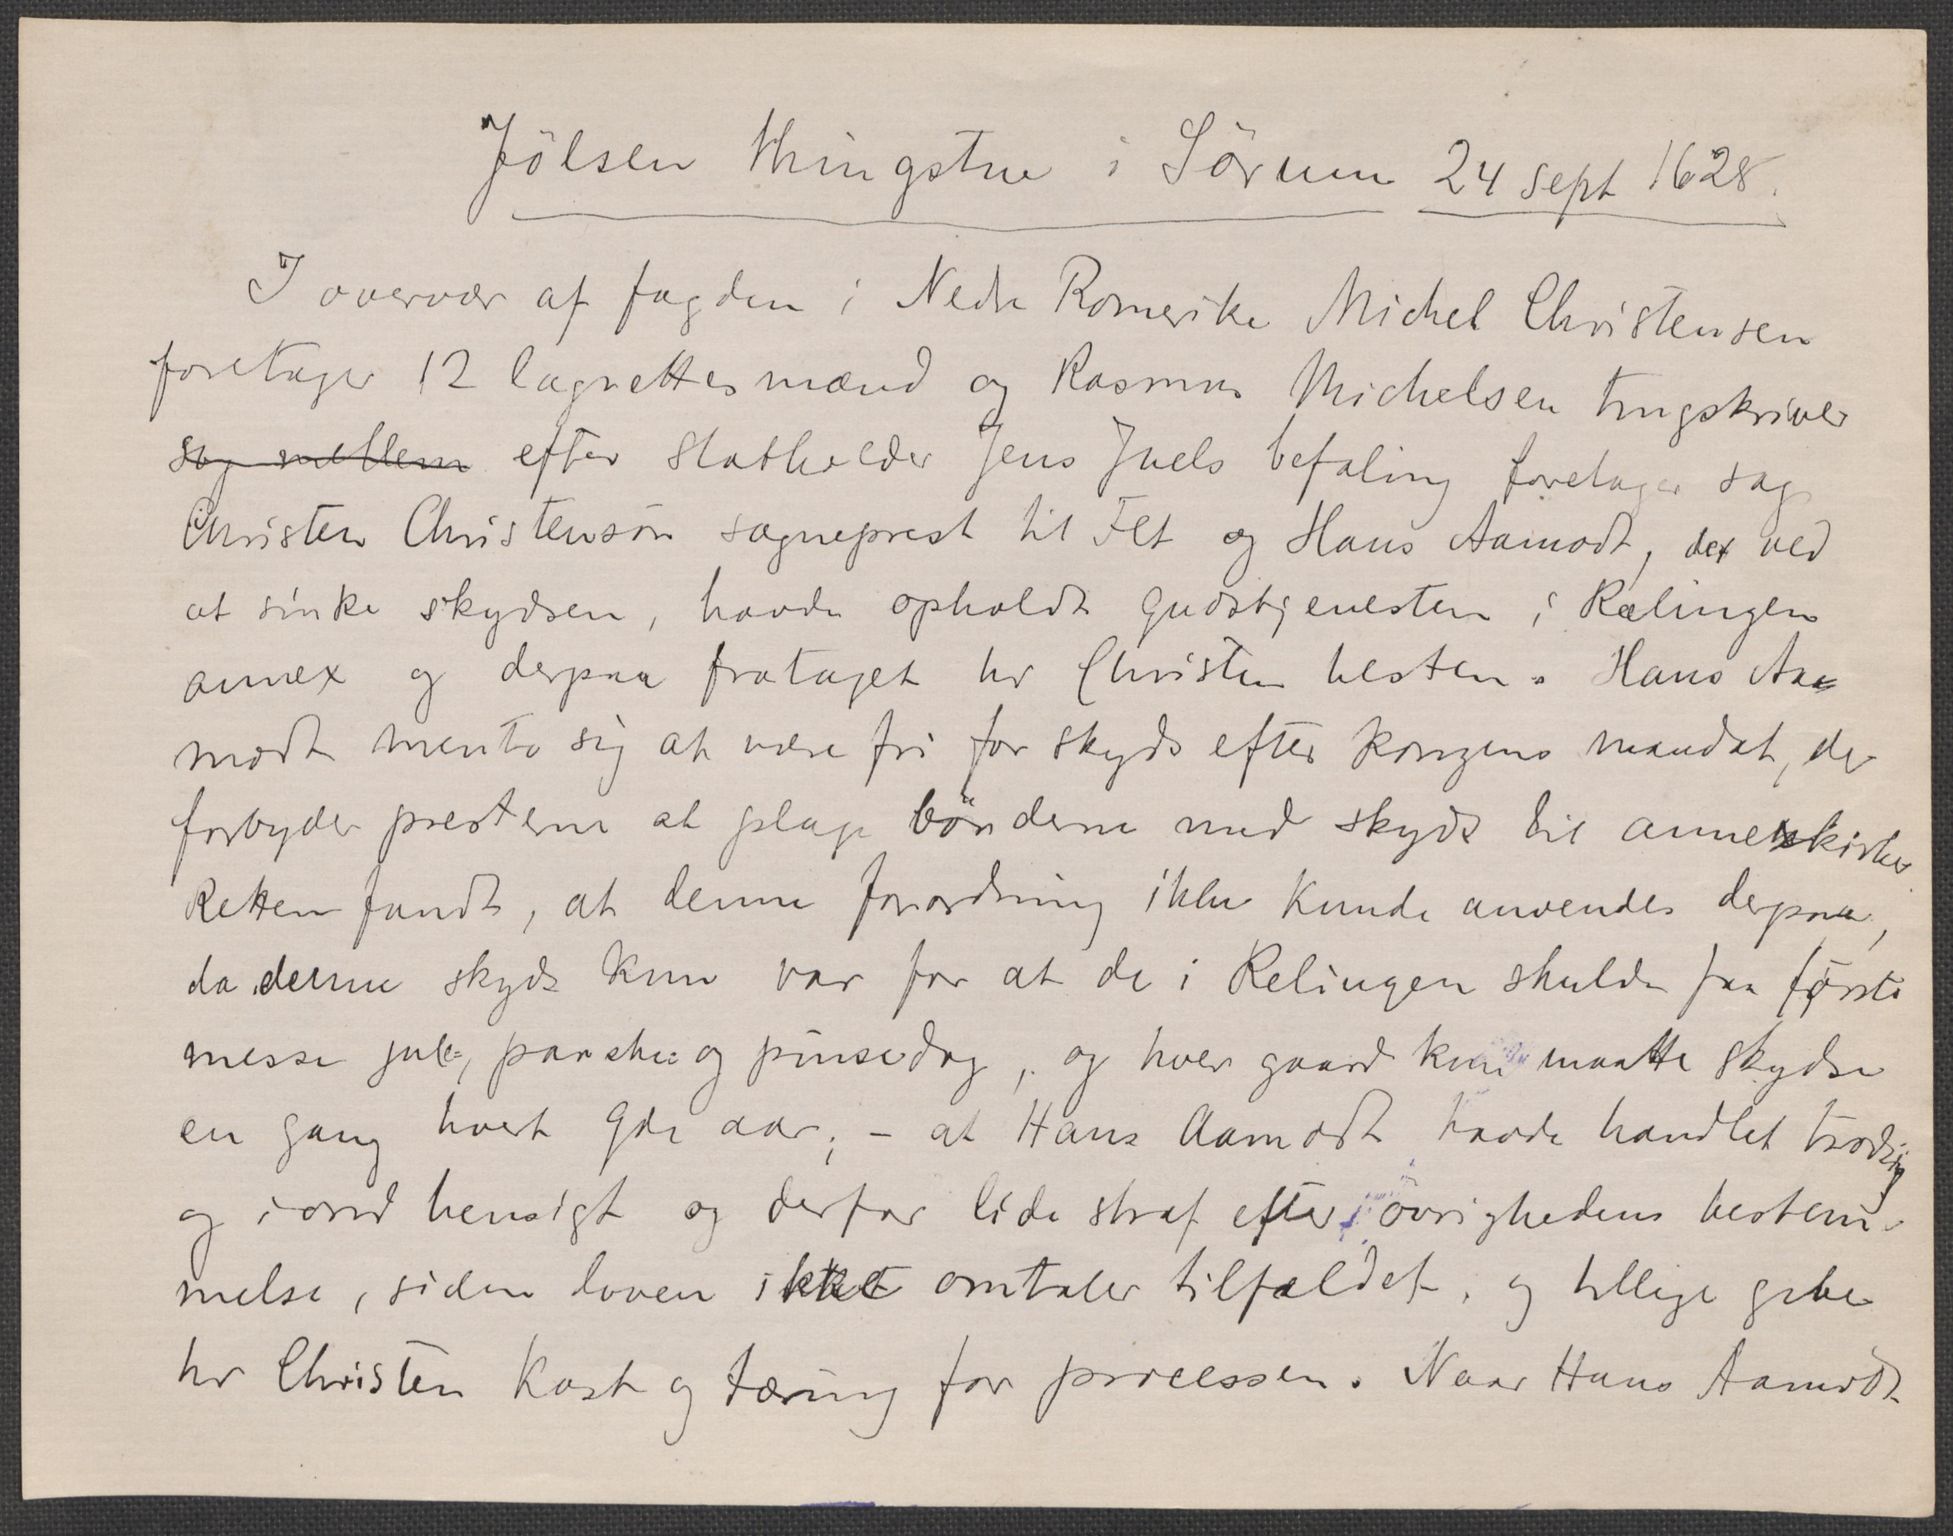 Jölsen thingstue i Sörum 24 sept 1628.
I overvær af fogden i Nedre Romerike Michel Christensen
foretager 12 lagrettesmænd og Rasmus Michelsen tingskriver
sag mellem efter statholder Jens Juels befaling foretages sag
Christen Christensön sogneprest til Fet og Hans Aamodt, der ved
at sinke skydsen, havde opholdt gudstjenesten i Rælingen
annex og derpaa frataget hr Christen hesten. Hans Aa-
modt mente sig at være fri for skyds efter kongens mandat, der
forbyder presterne at plage bönderne med skyds til annexkirker.
Retten fandt, at denne forordning ikke kunde anvendes derpaa,
da denne skyds kun var for at de i Relingen skulde faa förste
messe jule=, paaske= og pinsedag, og hver gaard kun maatte skydse
en gang hvert 9de aar; - at Hans Aamodt havde handlet trodsig
og i ond hensigt og derfor lide straf efter övrighedens bestem-
melse, siden loven ikke omtaler tilfældet, og tillige give
hr Christen kost og tæring for processen. Naar Hans Aamodt